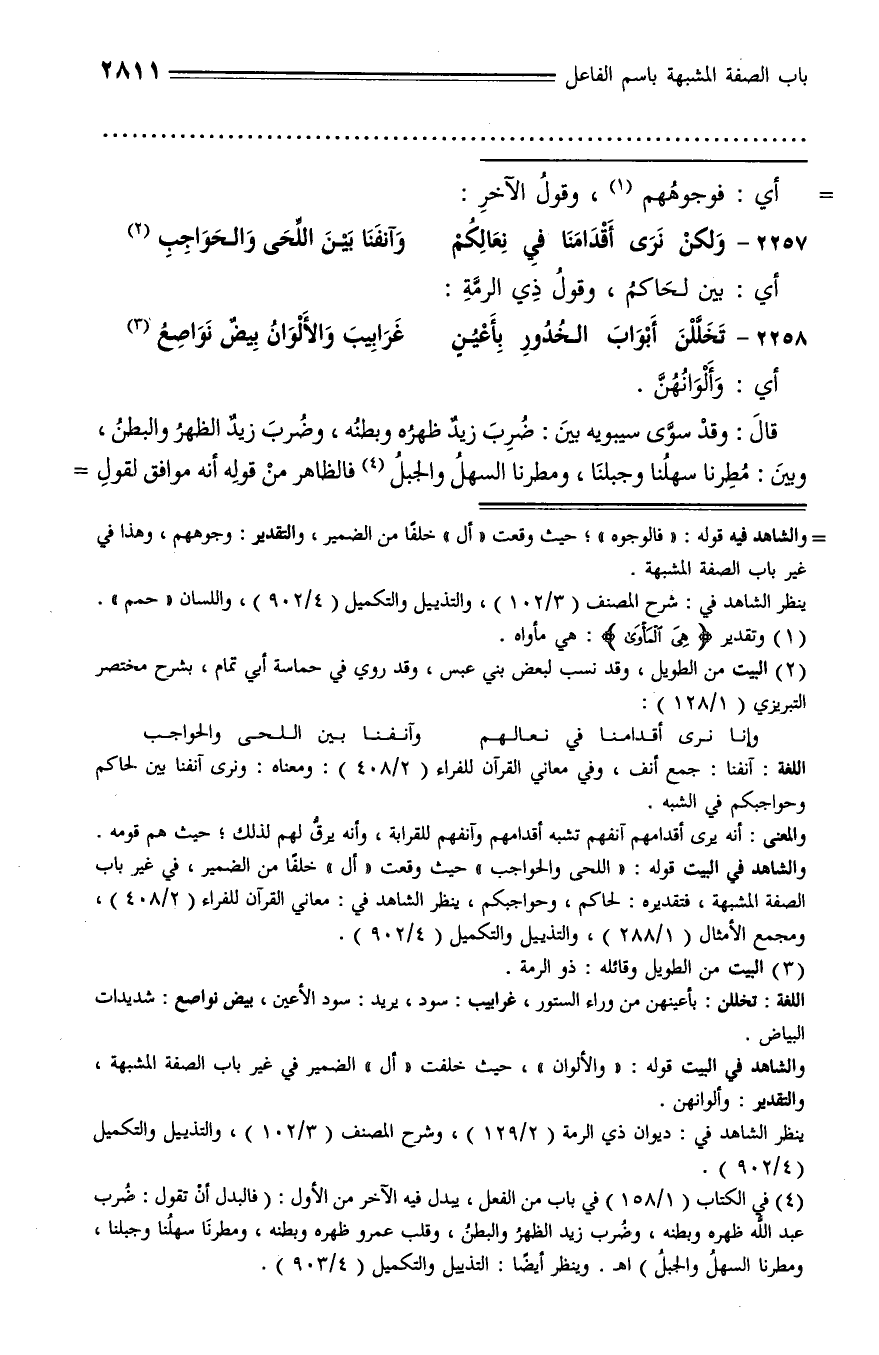 باب الصفة المشبهة باسم الفاعل ٢٨١١
= أي : فوجوهُهم (١) ، وقولُ الآخرِ :
٢٢٥٧ - وَلكنْ نَرَى أَقْدَامَنَا فِي نِعَالِكُمْ وَآنفَنَا بَيْـنَ اللِّحَى وَالـحَوَاجِبِ (٢)
أي : بين لـحَاكمُ ، وقولُ ذِي الرمَّةِ :
٢٢٥٨ - تَخَلَّلْنَ أَبْوَابَ الـخُدُورِ بِأَعْيُـنٍ غَرَابِيبَ وَالأَلْوَانُ بِيضٌ نَوَاصِعُ (٣)
أي : وَأَلْوَانُهُنَّ .
قالَ : وقدْ سوَّى سيبويه بينَ : ضُرِبَ زيدٌ ظهرُه وبطنُه ، وضُربَ زيدٌ الظهرُ والبطنُ ،
وبينَ : مُطِرنا سهلُنا وجبلنَا ، ومطرنا السهلُ والجبلُ (٤) فالظاهر منْ قولِه أنه موافق لقولِ =
= والشاهد فيه قوله : « فالوجوه » ؛ حيث وقعت « أل » خلفًا من الضمير ، والتقدير : وجوههم ، وهذا في
غير باب الصفة المشبهة .
ينظر الشاهد في : شرح المصنف ( ١٠٢/٣ ) ، والتذييل والتكميل ( ٩٠٢/٤ ) ، واللسان « حمم » .
(١) وتقدير ﴿ هِيَ ٱلْمَأْوَىٰ ﴾ : هي مأواه .
(٢) البيت من الطويل ، وقد نسب لبعض بني عبس ، وقد روي في حماسة أبي تمام ، بشرح مختصر
التبريزي ( ١٢٨/١ ) :
وإنـا نـرى أقـدامـنـا في نـعـالـهـم وآنـفـنـا بـين الـلـحـى والحواجـب
اللغة : آنفنا : جمع أنف ، وفي معاني القرآن للفراء ( ٤٠٨/٢ ) : ومعناه : ونرى آنفنا بين لحاكم
وحواجبكم في الشبه .
والمعنى : أنه يرى أقدامهم آنفهم تشبه أقدامهم وآنفهم للقرابة ، وأنه يرقُّ لهم لذلك ؛ حيث هم قومه .
والشاهد في البيت قوله : « اللحى والحواجب » حيث وقعت « أل » خلفًا من الضمير ، في غير باب
الصفة المشبهة ، فتقديره : لحاكم ، وحواجبكم ، ينظر الشاهد في : معاني القرآن للفراء ( ٤٠٨/٢ ) ،
ومجمع الأمثال ( ٢٨٨/١ ) ، والتذييل والتكميل ( ٩٠٢/٤ ) .
(٣) البيت من الطويل وقائله : ذو الرمة .
اللغة : تخللن : بأعينهن من وراء الستور ، غرابيب : سود ، يريد : سود الأعين ، بيض نواصع : شديدات
البياض .
والشاهد في البيت قوله : « والألوان » ، حيث خلفت « أل » الضمير في غير باب الصفة المشبهة ،
والتقدير : وألوانهن .
ينظر الشاهد في : ديوان ذي الرمة ( ١٢٩/٢ ) ، وشرح المصنف ( ١٠٢/٣ ) ، والتذييل والتكميل
( ٩٠٢/٤ ) .
(٤) في الكتاب ( ١٥٨/١ ) في باب من الفعل ، يبدل فيه الآخر من الأول : ( فالبدل أنْ تقول : ضُرب
عبد اللَّه ظهره وبطنه ، وضُرب زيد الظهرُ والبطنُ ، وقلب عمرو ظهره وبطنه ، ومطرنَا سهلُنا وجبلنا ،
ومطرنا السهلُ والجبلُ ) اهـ . وينظر أيضًا : التذييل والتكميل ( ٩٠٣/٤ ) .